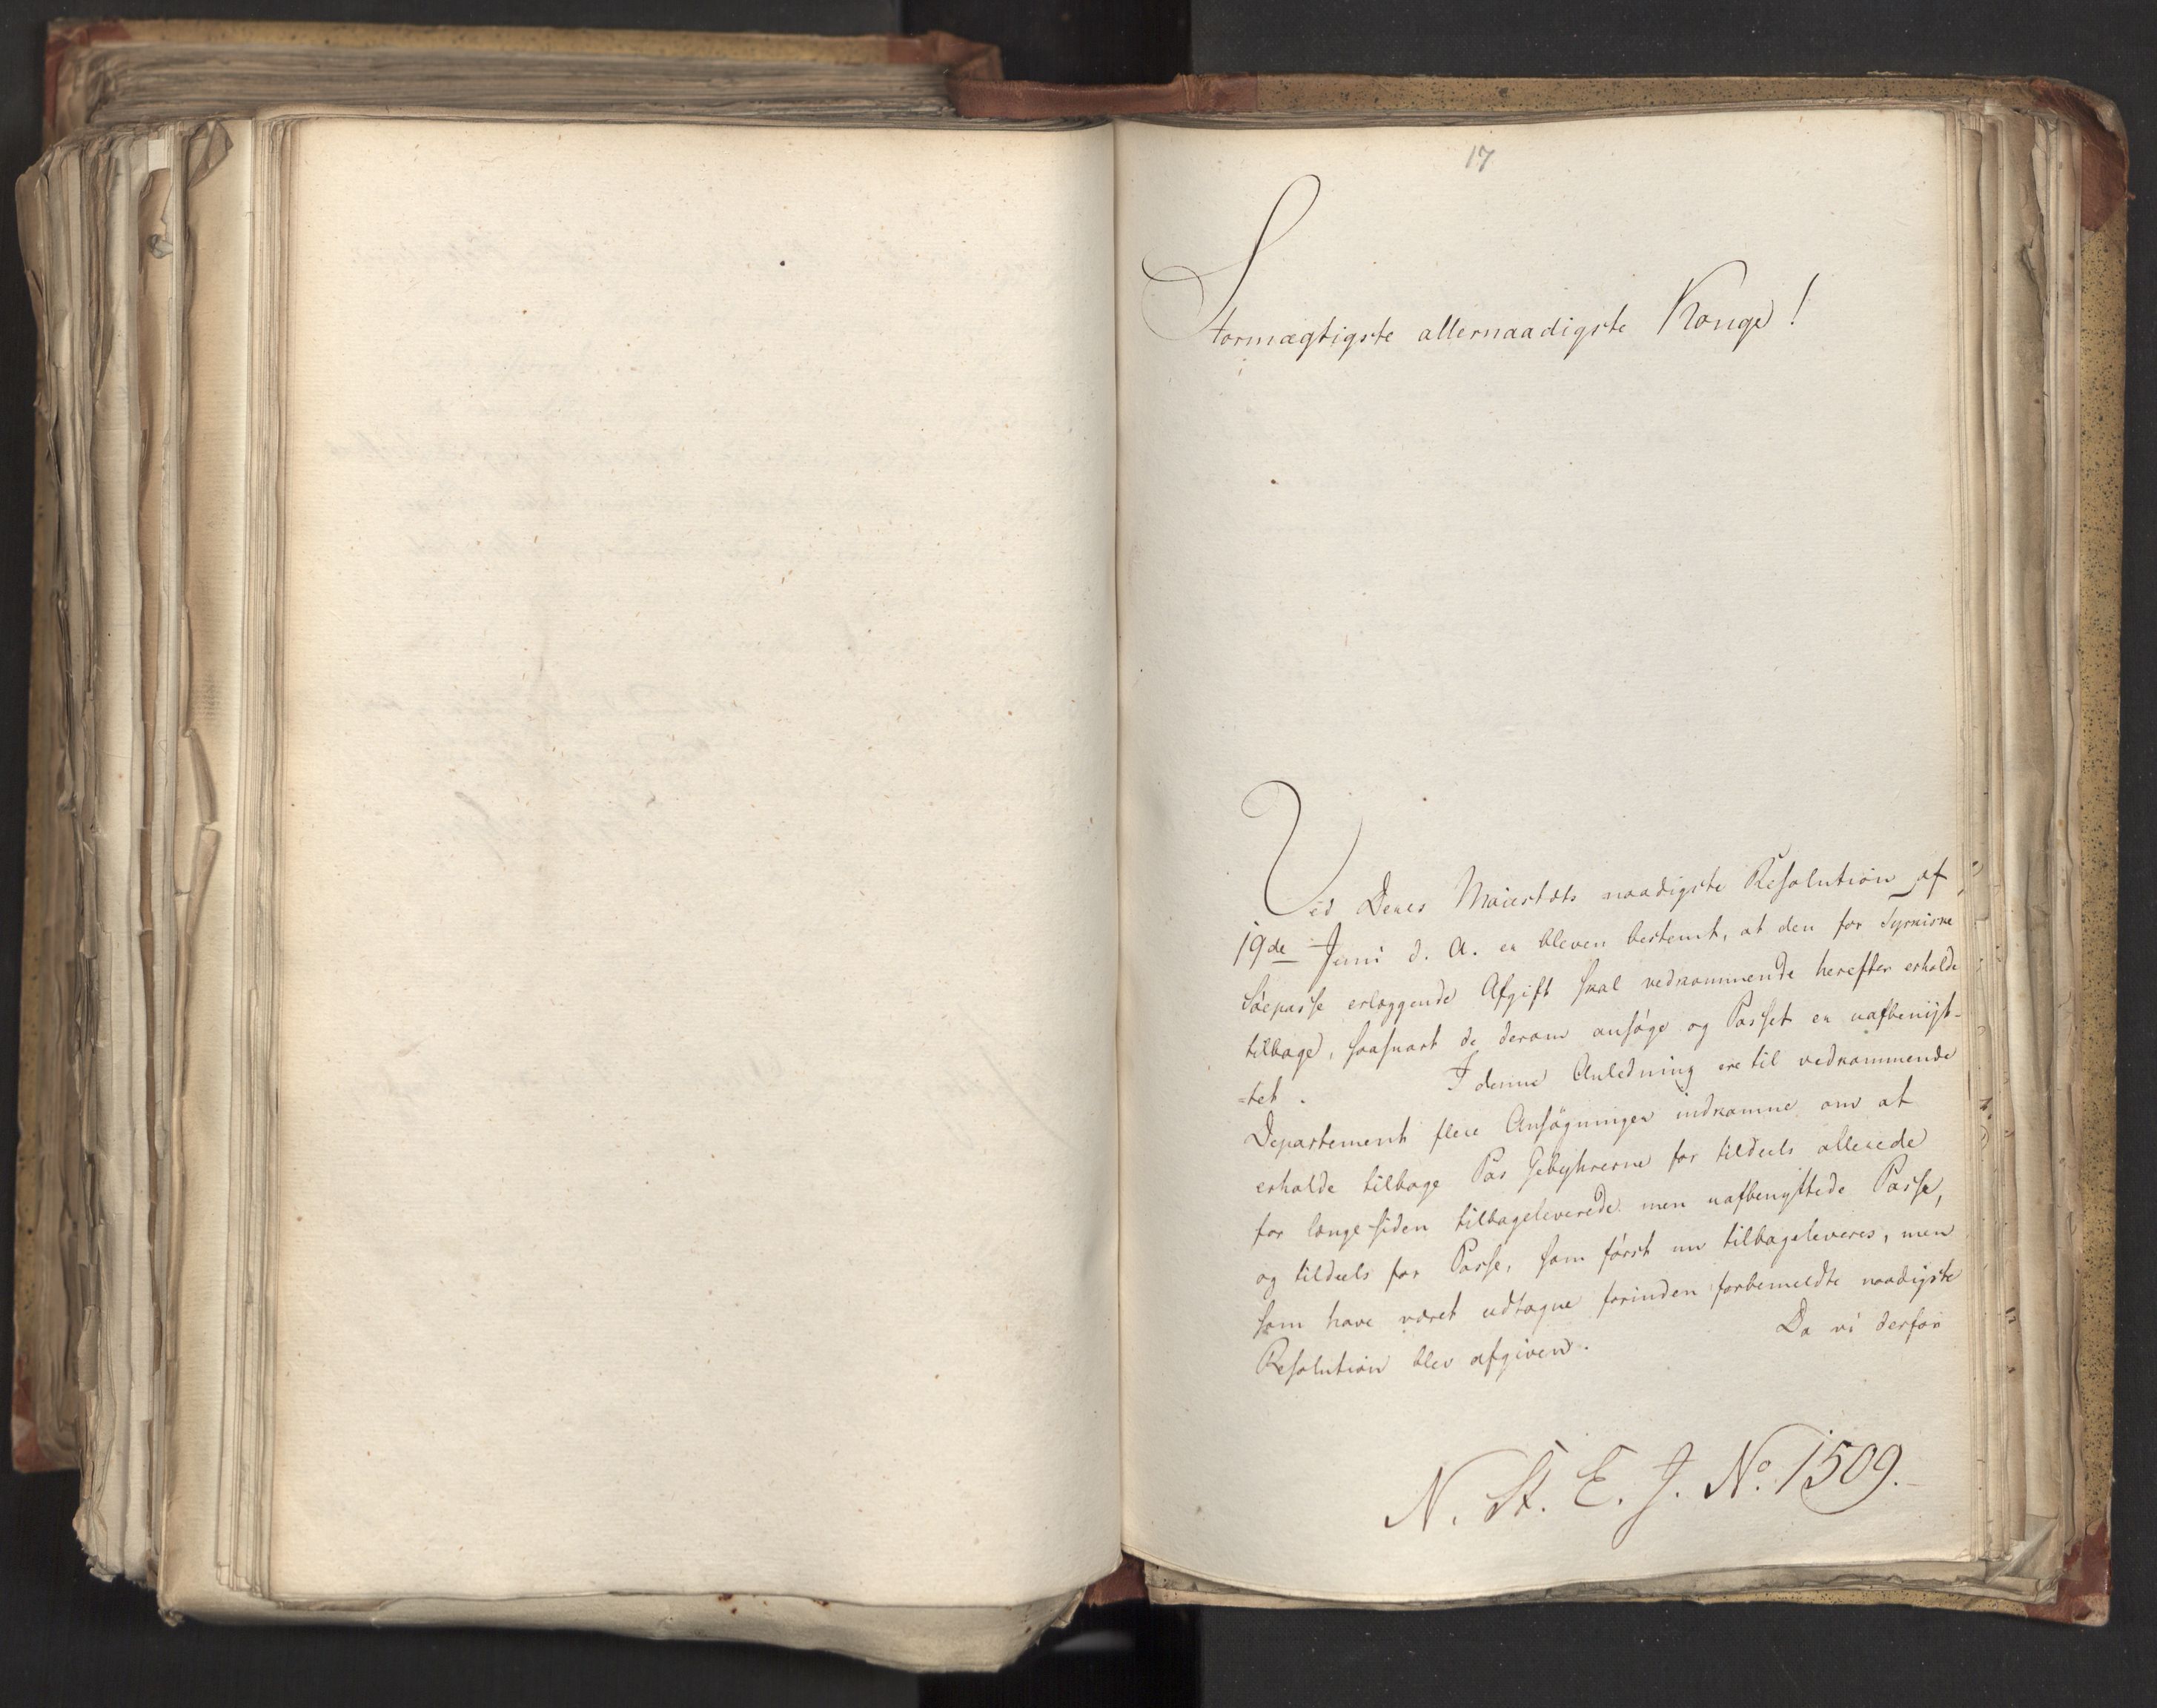 17
Stormægtigste allernaadigste Konge!
Ved Deres Maiestæts naadigste Resolution af
19de Juni d. A. er bleven bestemt, at den for Tyrkiske
Søepasse erlæggende Afgift skal vedkommende herefter erholde
tilbage, saasnart de derom ansøge og Passet er uafbenyt-
-tet. I denne Anledning ere til vedkommende
Departement flere Ansøgninger indkomne om at
erholde tilbage Pas Gebyhrerne for tildeels allerede
for længe siden tilbageleverede men uafbenyttede Passe,
og tildeels for Passe, som først nu tilbageleveres, men
som have været udtagne forinden forbemeldte naadigste
Resolution blev afgiven. Da vi derfor
N. St. E. J. No. 1509.